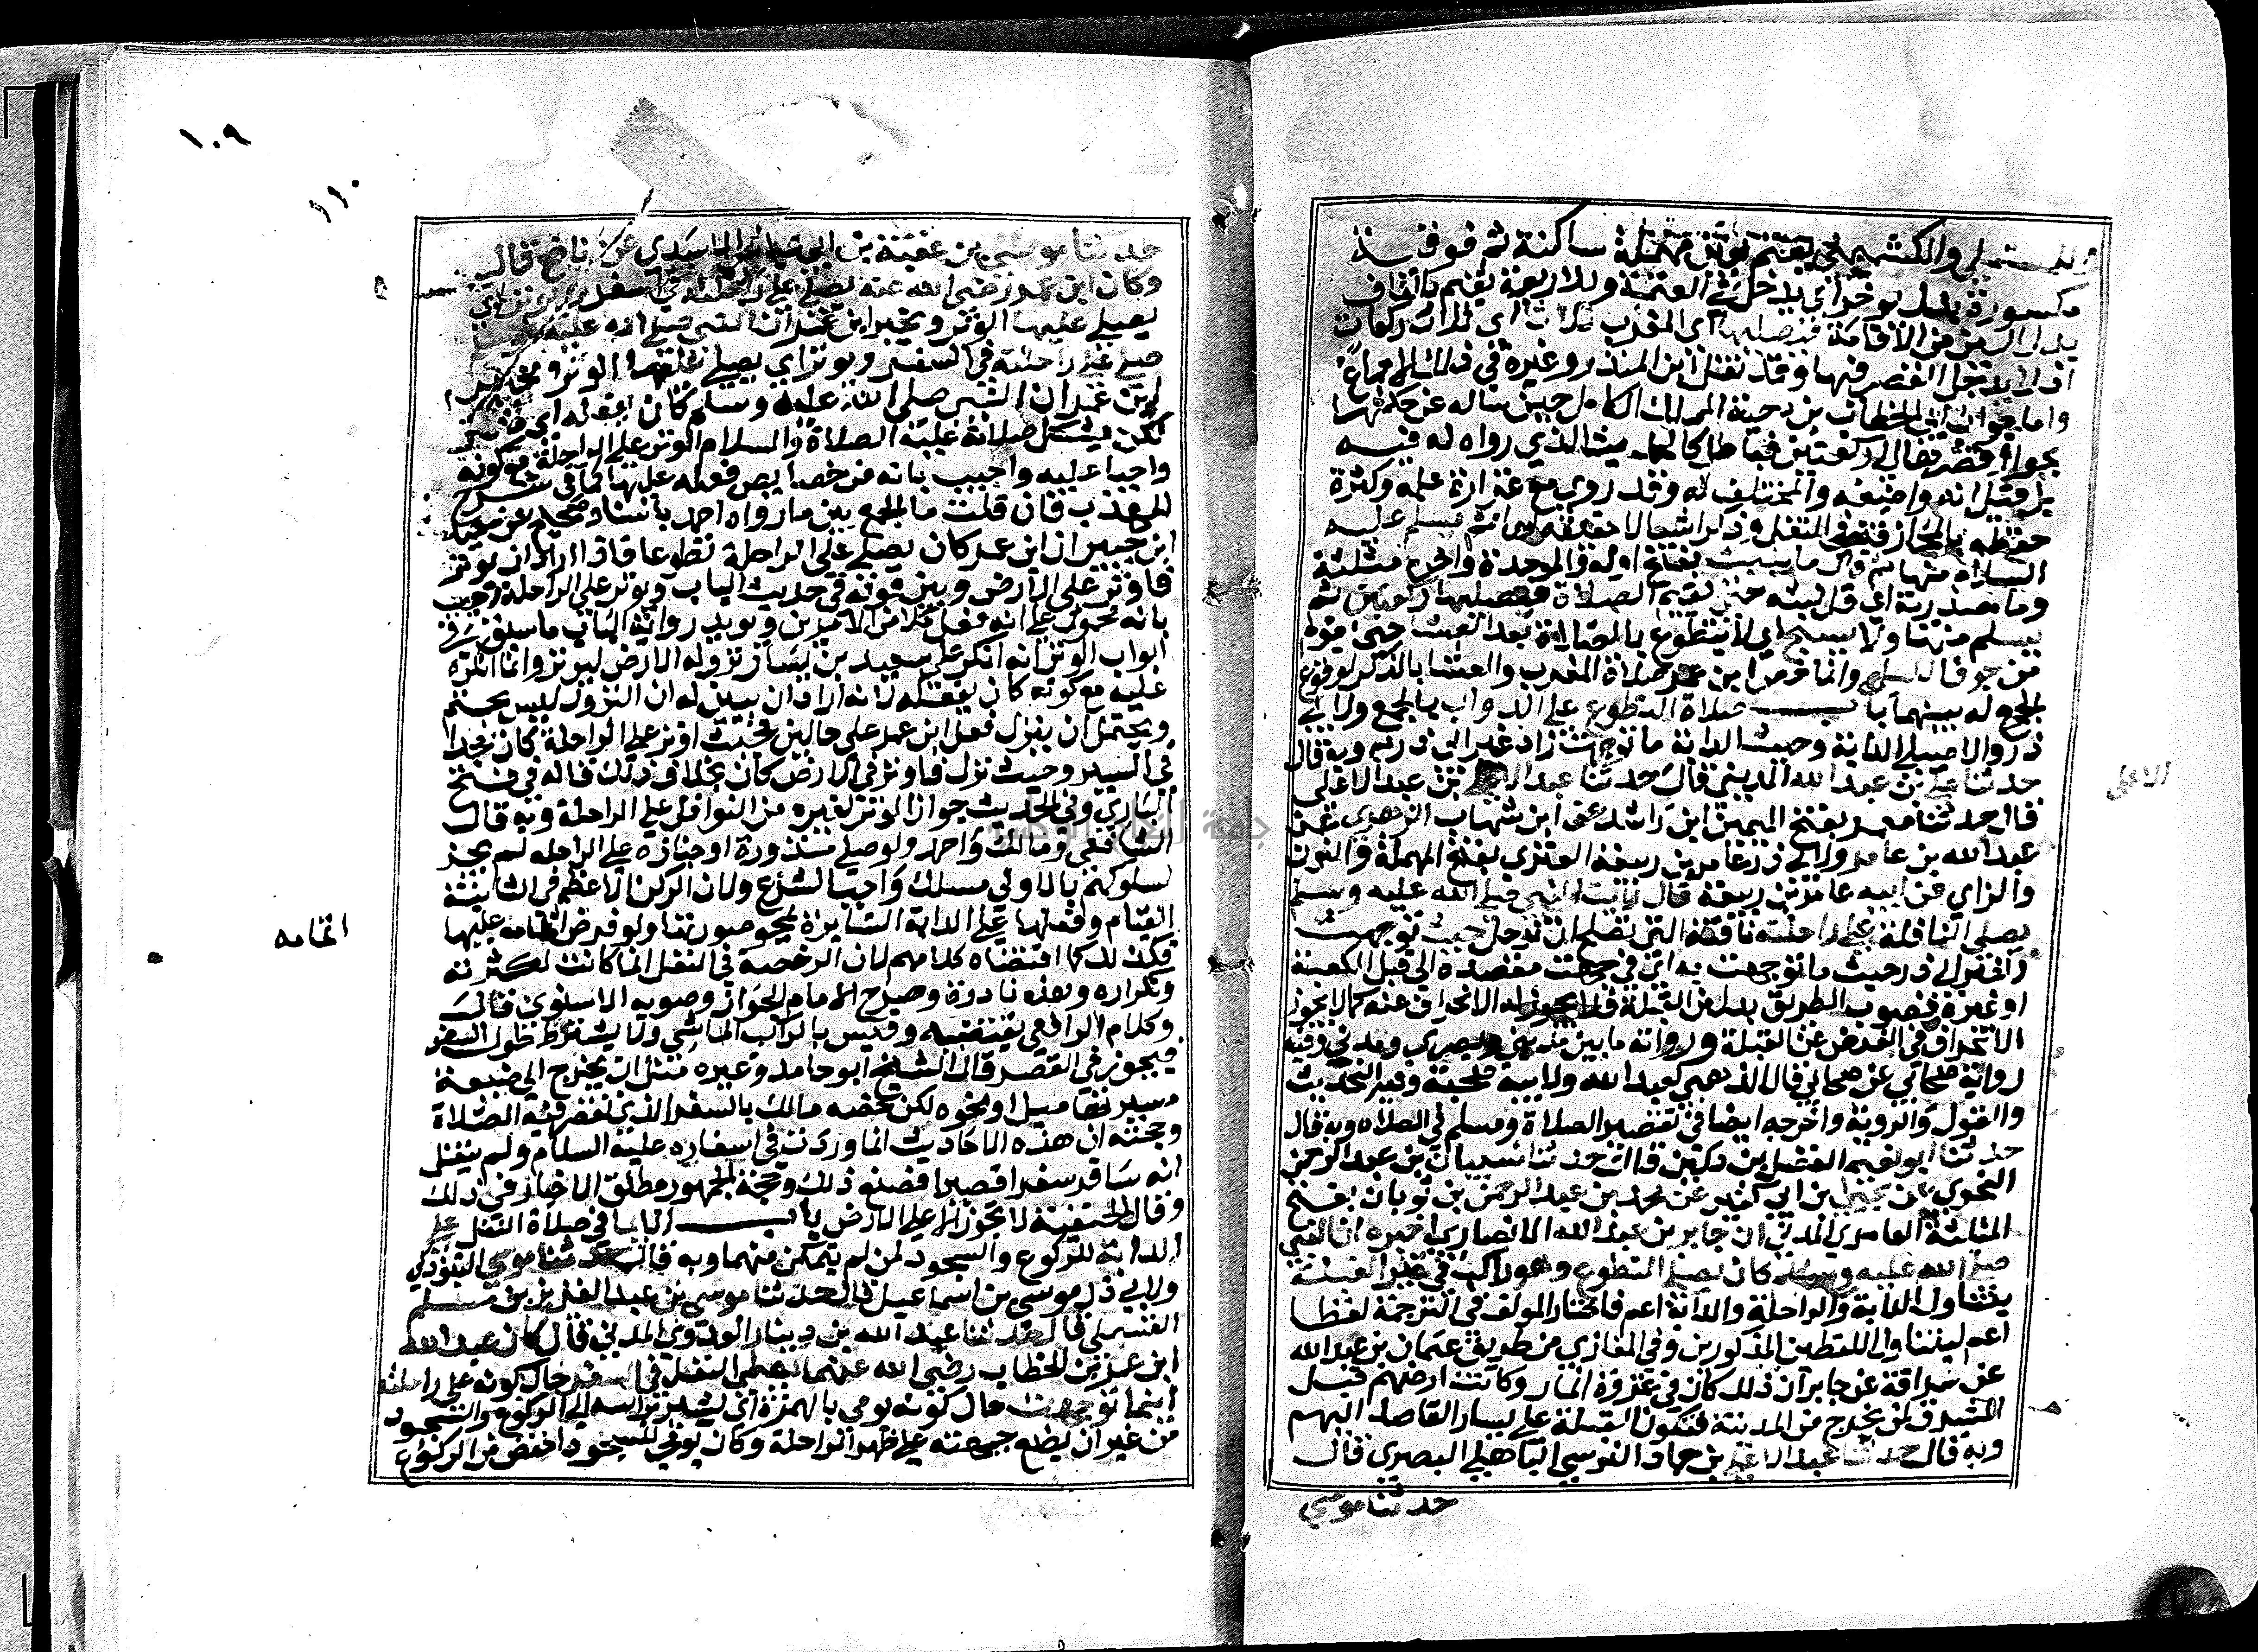 وللمستملي والكشميهني يعتم بعين مهملة ساكنة ثم فوقية
مكسورة بدل يؤخر أي يدخل في العتمة وللاربعة يقيم بالقاف
بدل العين من الاقامة فيصليها أي المغرب ثلاثا أي ثلاث ركعات
اذ لا يدخل القصر فيها وقد نقل ابن المنذر وغيره في ذلك الاجماع
واما جواب ابي الخطاب بن دحية الملك الكامل حين ساله عن حكمها
بجواز قصرها الى ركعتين فباطل كالحديث الذي رواه له فيه
بل قيل انه واضعه والمختلق له وقد رمي مع غزارة علمه وكثرة
حفظه بالمجازفة في النقل وذكر اشيا لا حقيقة لها ثم يسلم عليه
السلام منها ثم قل ما يلبث بفتح اوله والموحدة واخره مثلثة
وما مصدرية أي قل لبثه حتى يقيم الصلاة فيصليها ركعتين ثم
يسلم منها ولا يسبح أي لا يتطوع بالصلاة بعد العشا حتى يقوم
من جوف الليل وانما خص ابن عمر صلاة المغرب والعشا بالذكر لوقوع
الجمع له بينهما باب صلاة التطوع على الدواب بالجمع ولابي
ذر والاصيلي الدابة وحيث الدابة ما توجهت زاد غير ابي ذر به وبه قال
حدثنا علي بن عبد الله المديني قال حدثنا عبد الاعلى بن عبد الاعلى
الاعلى
قال حدثنا معمر بفتح الميمين ابن راشد عن ابن شهاب الزهري عن
عبد الله بن عامر ولابي ذر عامر بن ربيعة العنزي بفتح المهملة والنون
والزاي عن ابيه عامر بن ربيعة قال رايت النبي صلى الله عليه وسلم
يصلي النافلة على راحلته ناقته التي تصلح ان ترحل حيث توجهت
ولغير ابي ذر حيث ما توجهت به أي في جهة مقصده الى قبل الكعبة
او غيره فصوب الطريق بدل من القبلة فلا يجوز له الانحراف عنه كما لا يجوز
الانحراف في الفرض عن القبلة ورواته ما بين مديني وبصري ومدني وفيه
رواية صحابي عن صحابي قال الذهبي لعبد الله ولابيه صحبة وفيه التحديث
والقول والروية واخرجه ايضا في تقصير الصلاة ومسلم في الصلاه وبه قال
حدثنا ابو نعيم الفضل بن دكين قال حدثنا شيبان بن عبد الرحمن
النحوي عن يحيى بن ابي كثير عن محمد بن عبد الرحمن بن ثوبان بفتح
المثلثة العامري المدني ان جابر بن عبد الله الانصاري اخبره ان النبي
صلى الله عليه وسلم كان يصلي التطوع وهو راكب في غير القبلة
يتناول الدابة والراحلة والدابة اعم فاختار المولف في الترجمة لفظا
اعم ليتناول اللفظين المذكورين وفي المغازي من طريق عثمان بن عبد الله
عن سراقة عن جابر ان ذلك كان في غزوة انمار وكانت ارضهم قبل
المشرق لمن يخرج من المدينة فتكون القبلة على يسار القاصد اليهم
وبه قال حدثنا عبد الاعلى بن حماد النرسي الباهلي البصري قال
حدثنا موسى
١٠٩
١١٠
حدثنا موسى بن عقبة بن ابي عياش الاسدي عن نافع قال
وكان ابن عمر رضي الله عنه يصلي على راحلته في السفر ويوتر أي
يصلي عليها الوتر ويخبر ابن عمر ان النبي صلى الله عليه وسلم
صلى على راحلته في السفر ويوتر أي يصلي عليها الوتر ويخبر
ابن عمر ان النبي صلى الله عليه وسلم كان يفعله أي
لكن يشكل صلاته عليه الصلاة والسلام الوتر على الراحلة مع كونه
واجبا عليه واجيب بانه من خصايص فعله عليها كما في شرح
المهذب فان قلت ما الجمع بين ما رواه احمد باسناد صحيح عن سعيد
ابن جبير ان ابن عمر كان يصلي على الراحلة تطوعا فاذا اراد ان يوتر
فاوتر على الارض وبين ثوته في حديث الباب ويوتر على الراحلة اجيب
بانه محمول على انه فعل كلا من الامرين ويويد رواية الباب ما سبق في
ابواب الوتر انه انكر على سعيد بن يسار نزوله الارض ليوتر وانما انكره
عليه مع كونه كان يفعله لانه اراد ان يبين له ان النزول ليس بحتم
ويحتمل ان ينزل فعل ابن عمر على حالين فحيث اوتر على الراحلة كان مجدا
في السير وحيث نزل فاوتر في الارض كان بخلاف ذلك قاله في فتح
الباري وفي الحديث جواز الوتر لغيره من النوافل على الراحلة وبه قال
الشافعي ومالك واحمد ولو صلى منذورة او جنازه على الراحله لم يجز
لسلوكهم بالاولى مسلك واجب الشرع ولان الركن الاعظم في الثانية
القيام وفعلها على الدابة السايرة يمحو صورتها ولو فرض اتمامه عليها
اتمامه
فكذلك كما اقتضاه كلامهم لان الرخصة في النفل انما كانت لكثرته
وتكراره وهذه نادرة وصرح الامام الجواز وصوبه الاسنوي قال
وكلام الرافعي يقتضيه وقيس بالراكب الماشي ولا يشترط طول السفر
فيجوز في القصر قال الشيخ ابو حامد وغيره مثل ان يخرج الى ضيعة
مسيرتها ميل او نحوه لكن خصه مالك بالسفر الذي تقصر فيه الصلاة
وحجته ان هذه الاحاديث انما وردت في اسفاره عليه السلام ولم ينقل
انه سافر سفرا قصيرا فصنع ذلك وحجة الجمهور مطلق الاخبار في ذلك
وقال الحنفية لا يجوز الا على الارض باب الايما في صلاة النفل على
الدابة للركوع والسجود لمن لم يتمكن منهما وبه قال حدثنا موسى التبوذكي
ولابي ذر موسى بن اسماعيل قال حدثنا موسى بن عبد العزيز بن مسلم
القسملي قال حدثنا عبد الله بن دينار العدوي المدني قال كان عبد الله
ابن عمر بن الخطاب رضي الله عنهما يصلي النفل في السفر حال كونه على راحلته
اينما توجهت حال كونه يومي بالهمزة أي يشير براسه الى الركوع والسجود
من غير ان يضع جبهته على ظهر الراحلة وكان يومي للسجود اخفض من الركوع